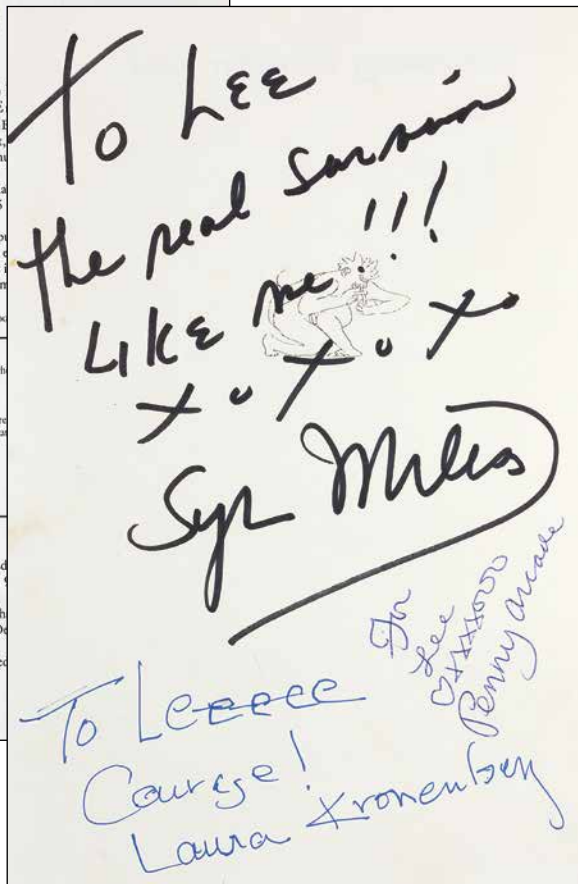 To LEE
the real
LIKE me!!!
XoXoX
Syl Miles
For
Lee
♡XXXXooo
Penny Arcade
To Leeeeee
Courage!
Laura Kronenberg